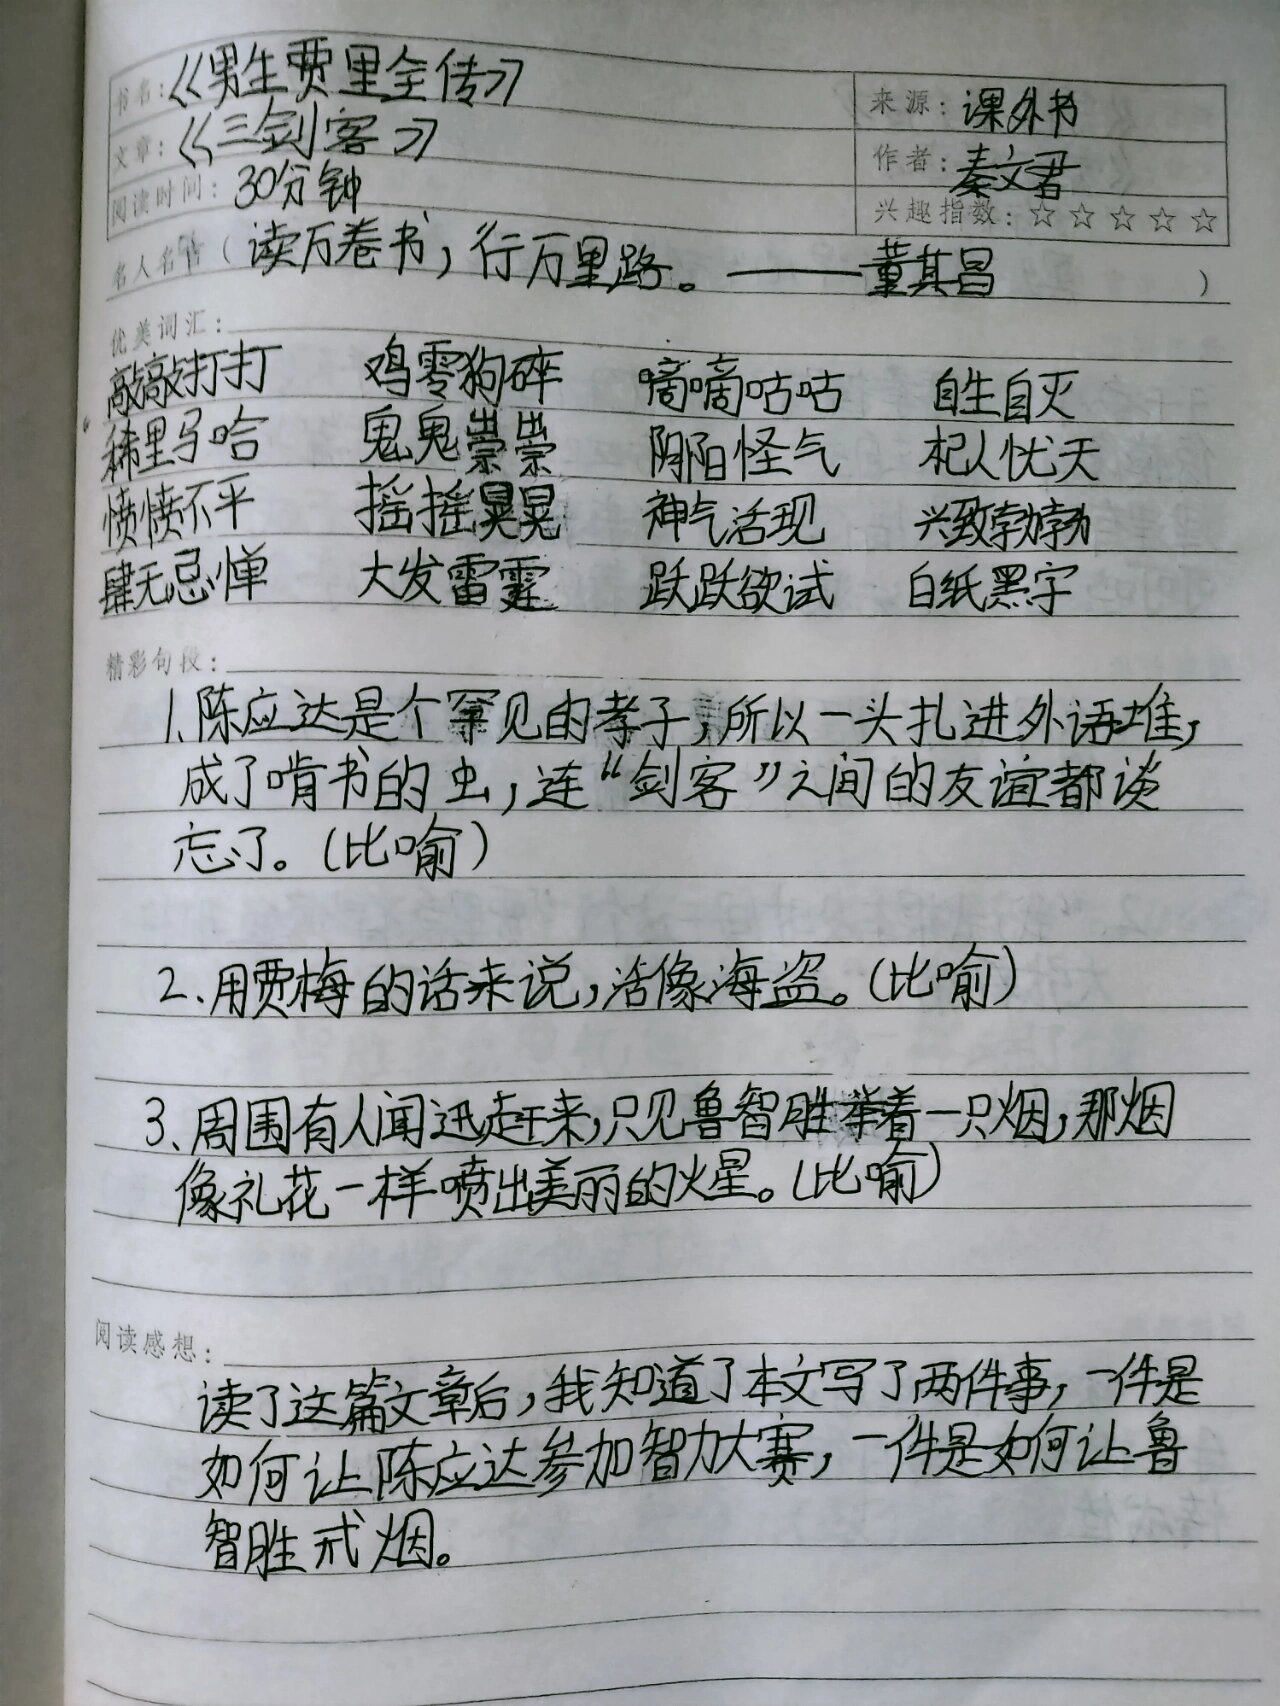 书名:《男生贾里全传》
来源:课外书
文章:《三剑客》
作者:秦文君
阅读时间:30分钟
兴趣指数:☆☆☆☆☆
名人名言(读万卷书,行万里路。——董其昌)
优美词汇:
敲敲打打 鸡零狗碎 嘀嘀咕咕 自生自灭
稀里马哈 鬼鬼祟祟 阴阳怪气 杞人忧天
愤愤不平 摇摇晃晃 神气活现 兴致勃勃
肆无忌惮 大发雷霆 跃跃欲试 白纸黑字
精彩句段:
1.陈应达是个罕见的孝子,所以一头扎进外语堆,
成了啃书的虫,连“剑客”之间的友谊都谈
忘了。(比喻)
2、用贾梅的话来说,活像海盗。(比喻)
3、周围有人闻迅赶来,只见鲁智胜举着一只烟,那烟
像礼花一样喷出美丽的火星。(比喻)
阅读感想:
读了这篇文章后,我知道了本文写了两件事,一件是
如何让陈应达参加智力大赛,一件是如何让鲁
智胜戒烟。